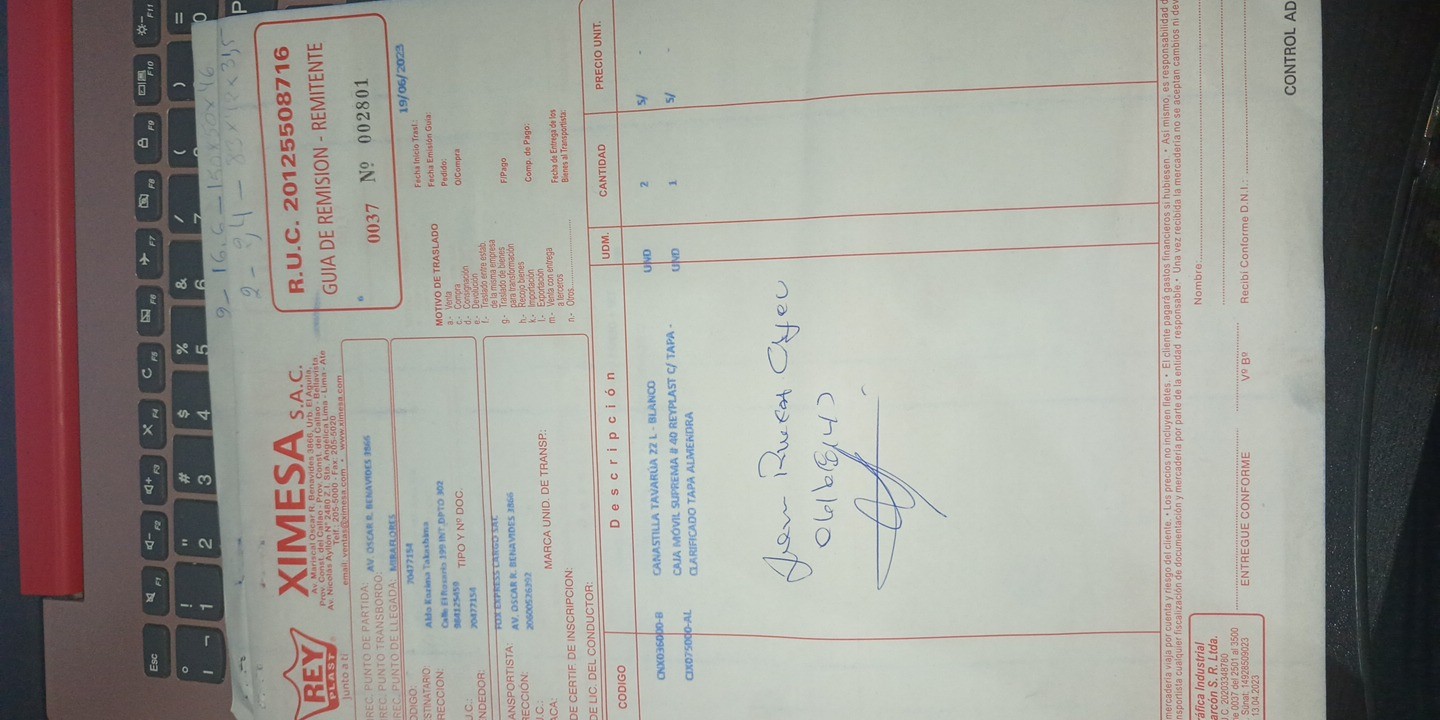 REY
PLAST
Junto a tí
XIMESA S.A.C.
Av. Mariscal Oscar R. Benavides 3866, Urb. El Aguila,
Prov. Const. del Callao - Prov. Const. del Callao - Bellavista
Av. Nicolás Ayllón Nº 2480 Z.I. Sta. Angélica Lima - Lima - Ate
Telf.: 205-5000 - Fax: 205-5020
email: ventas@ximesa.com • www.ximesa.com
R.U.C. 20125508716
GUIA DE REMISION - REMITENTE
0037 Nº 002801
REC. PUNTO DE PARTIDA: AV. OSCAR R. BENAVIDES 3866
REC. PUNTO TRANSBORDO:
REC. PUNTO DE LLEGADA: MIRAFLORES
ÓDIGO: 70477154
STINATARIO Aldo Kazima Takashima
RECCION: Calle El Rosario 199 INT.DPTO 302
U.C.: 984125459 TIPO Y Nº DOC.
NDEDOR: 70477154
ANSPORTISTA: FOX EXPRESS CARGO SAC
RECCIÓN: AV. OSCAR R. BENAVIDES 3866
U.C.: 20600526392
ACA: MARCA UNID. DE TRANSP.:
DE CERTIF. DE INSCRIPCION:
DE LIC. DEL CONDUCTOR:
MOTIVO DE TRASLADO
a.- Venta
c.- Compra
d.- Consignación
e.- Devolución
f.- Traslado entre estab.
de la misma empresa
g.- Traslado de bienes
para transformación
h.- Recojo bienes
k.- Importación
l.- Exportación
m.- Venta con entrega
a terceros
n.- Otros
19/06/2023
Fecha Inicio Trasl.:
Fecha Emisión Guía:
Pedido:
O/Compra
F/Pago
Comp. de Pago:
Fecha de Entrega de los
Bienes al Transportista:
CODIGO Descripción UDM. CANTIDAD PRECIO UNIT.
CNX036000-B CANASTILLA TAVARÚA 22 L - BLANCO UND 2 S/ -
CJX075000-AL CAJA MÓVIL SUPREMA # 40 REYPLAST C/ TAPA - UND 1 S/ -
CLARIFICADO TAPA ALMENDRA
mercadería viaja por cuenta y riesgo del cliente. • Los precios no incluyen fletes. • El cliente pagará gastos financieros si hubiesen. • Así mismo, es responsabilidad d
nsportista cualquier fiscalización de documentación y mercadería por parte de la entidad responsable • Una vez recibida la mercadería no se aceptan cambios ni dev
ráfica Industrial
arcón S. R. Ltda.
U.C. 20203348780
0037 del 2501 al 3500
13.04.2023
ENTREGUE CONFORME
Vº Bº
Nombre:
Recibí Conforme D.N.I.:
CONTROL AD
Esc
F1
F2
F3
F4
F5
F6
F7
F8
F9
F10
F11
! 1
" 2
# 3
$ 4
% 5
& 6
/ 7
(
)
= 0
P